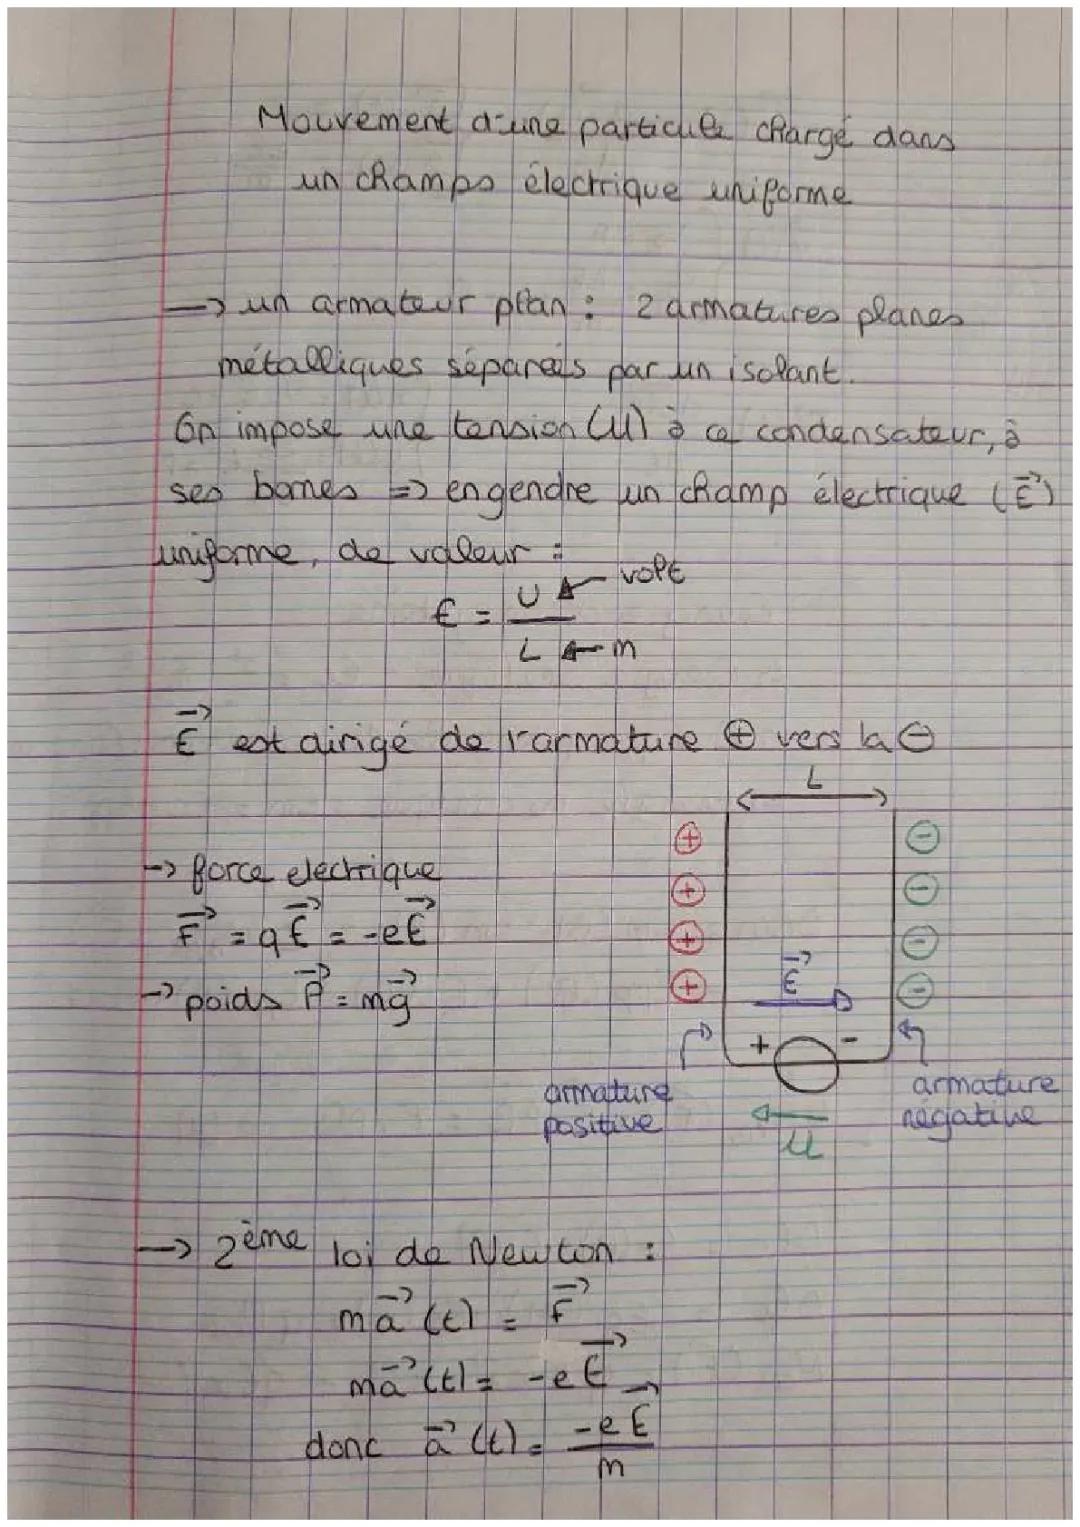 Mouvement d'une particule chargé dans
un champs électrique uniforme
→ un armateur plan : 2 armatures planes
métalliques séparées par un isolant.
On impose une tension (U) à ce condensateur, à
ses bornes => engendre un champ électrique (E⃗)
uniforme, de valeur :
E = U / L
volt
m
E⃗ est dirigé de l'armature ⊕ vers la ⊖
L
→ force electrique
F⃗ = qE⃗ = -eE⃗
→ poids P⃗ = mg⃗
⊕ ⊖
⊕ ⊖
⊕ ⊖
⊕ ⊖
E⃗
+ -
armature
positive
U
armature
négative
→ 2ème loi de Newton :
ma⃗(t) = F⃗
ma⃗(t) = -eE⃗
donc a⃗(t) = -eE⃗ / m